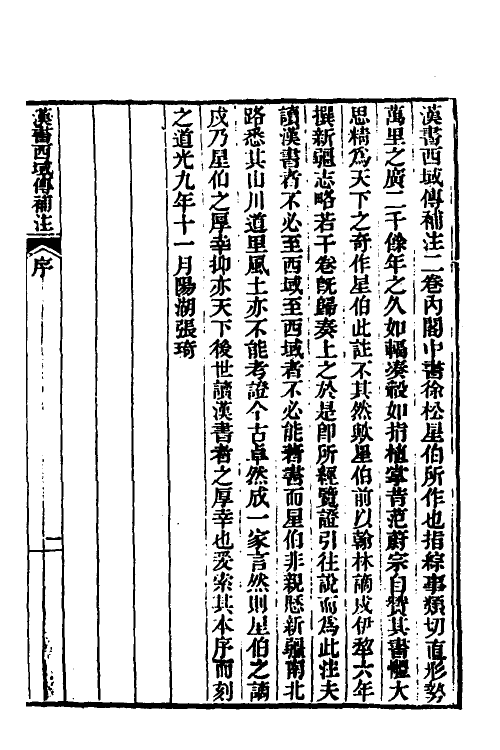 漢書西域傳補注二卷內閣中書徐松星伯所作也指綜事類切直形勢
萬里之廣二千餘年之久如輻湊轂如指植掌昔范蔚宗自贊其書體大
思精爲天下之奇作星伯此註不其然歟星伯前以翰林謫戍伊犂六年
撰新疆志略若干卷旣歸奏上之於是卽所經覽證引往說而爲此注夫
讀漢書者不必至西域至西域者不必能著書而星伯非親懸新疆南北
路悉其山川道里風土亦不能考證今古卓然成一家言然則星伯之謫
戍乃星伯之厚幸抑亦天下後世讀漢書者之厚幸也爰索其本序而刻
之道光九年十一月陽湖張琦
漢書西域傳補注
序
一